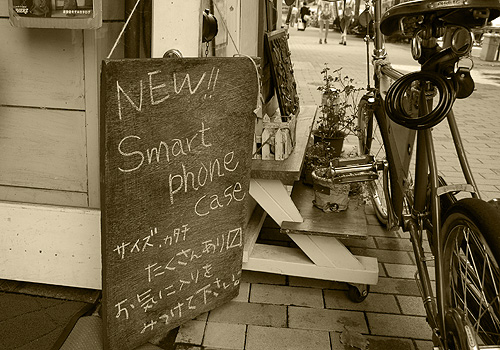 NEW!!
Smart
phone
case
サイズ・カタチ
たくさんあり〼
お気に入りを
みつけて下さい